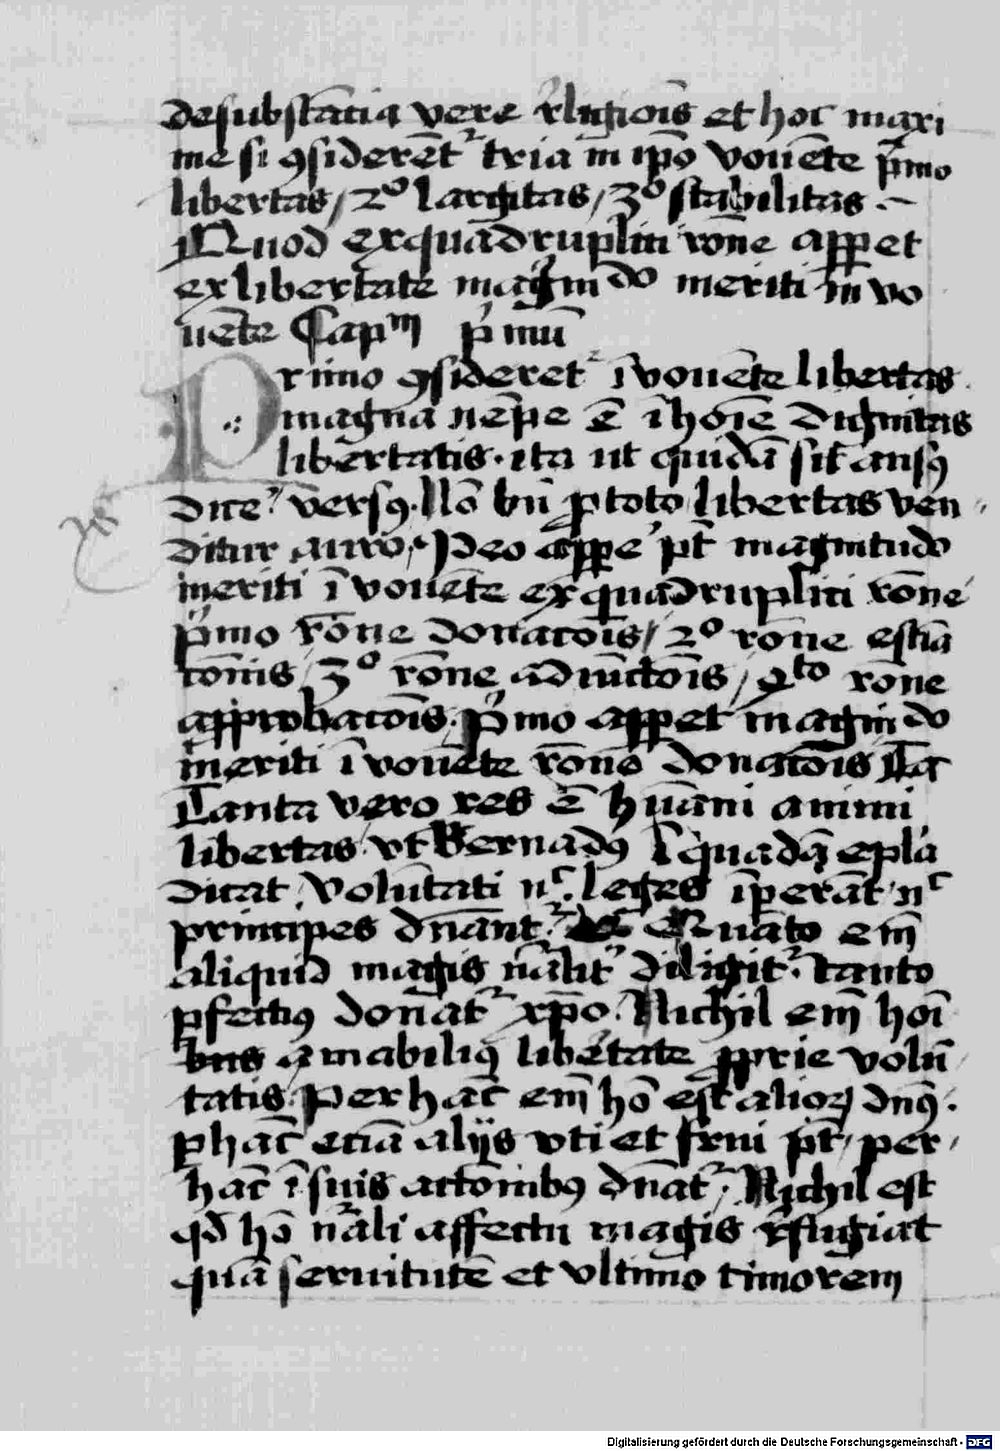 de substa͞cia vere r̉ligio͞is et hoc maxi
me si ꝯsidere͞tʳ tria in ip͞o vove͞te p̉mo
libertas / 2º largitas / 3º stabilitas
Quod ex quadruplici ro͞ne apparet
ex libertate mag̉m do meriti in vo
ue͞te Capᵐ p̉mu͞
Primo ꝯsideretʳ i͞ voue͞te libertas
magna ne͞pe e͞ i͞ ho͞ie dignitas
libertatis · ita ut quida͞ sit ausꝰ
dice͛ versꝰ · No͞ bn̄ ꝓ toto libertas ven
ditur auro · Ideo appe͛ pt̄ magnitudo
meriti i͞ voue͞te ex quadruplici ro͞ne
p̉mo ro͞ne donac͞ois / 2º ro͞ne estīa
c͞onis / 3º ro͞ne adiu͞cc͞ois / 4ᵗᵒ ro͞ne
approbac͞ois · p̉mo apparet magni do
meriti i͞ voue͞te ro͞ne donac͞ois
Tanta vero res e͞ hu͞ani animi
libertas · vt Bernadꝰ i͞ quada͞ epl̄a
dicat · Volu͞tati nᶜ leges i͞pera͞t nᶜ
principes dn̄antʳ · Qua͞to em̄
aliquid magis n̄alitʳ diligitʳ · tanto
ꝑfectiꝰ donatʳ xp̄o · Nichil em̄ ho͞i
bus amabiliꝰ libertate ꝓprie volu͞
tatis · Per hac͞ em̄ ho͞ est alioꝝ dn̄ꝰ ·
ꝑ hac͞ ecia͞ alijs vti et frui pt̄ / per
hac͞ i͞ suis actionibꝰ dn̄atʳ · Nichil est
qd̄ ho͞ n̄ali affectu magis r̉fugiat
qua͞ seruitute͞ et vltimo timorem
Digitalisierung gefördert durch die Deutsche Forschungsgemeinschaft - DFG